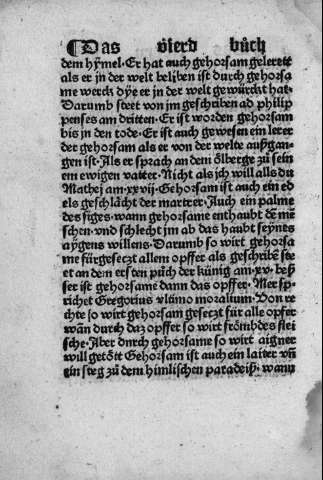 Das vierd bůch
dem hymel· Er hat auch gehorsam gelerett
als er jn der welt beliben ist durch gehorsa
me werck dye er jn der welt gewürcht hat·
Darumb steet von jm geschriben ad philip
penses am dritten· Er ist worden gehorsam
bis in den tode· Er ist auch gewesen ein lerer
der gehorsam als er von der welte außgan-
gen ist· Als er sprach an dem ölberge zů sein
em ewigen vatter· Nicht als jch will als du
Mathej am·xxvij· Gehorsam ist auch ein ed
els geschlächt der martrer· Auch ein palme
des siges· wann gehorsame enthaubt dē mē
schen· vnd schlecht jm ab das haubt seynes
aygens willens· Darumb so wirt gehorsa
me fürgesetzt allem opffer als geschribē ste
et an dem ersten půch der künig am·xv· beß
ser ist gehorsame dann das opffer· Mer sp
richet Gregorius vltimo moralium· Von re
chte so wirt gehorsam gesetzt für alle opffer
wañ durch daz opffer so wirt frömbdes flei
sche· Aber durch gehorsame so wirt aigner
will getött Gehorsam ist auch ein laiter vñ
ein steg zů dem himlischen paradeiß· wann